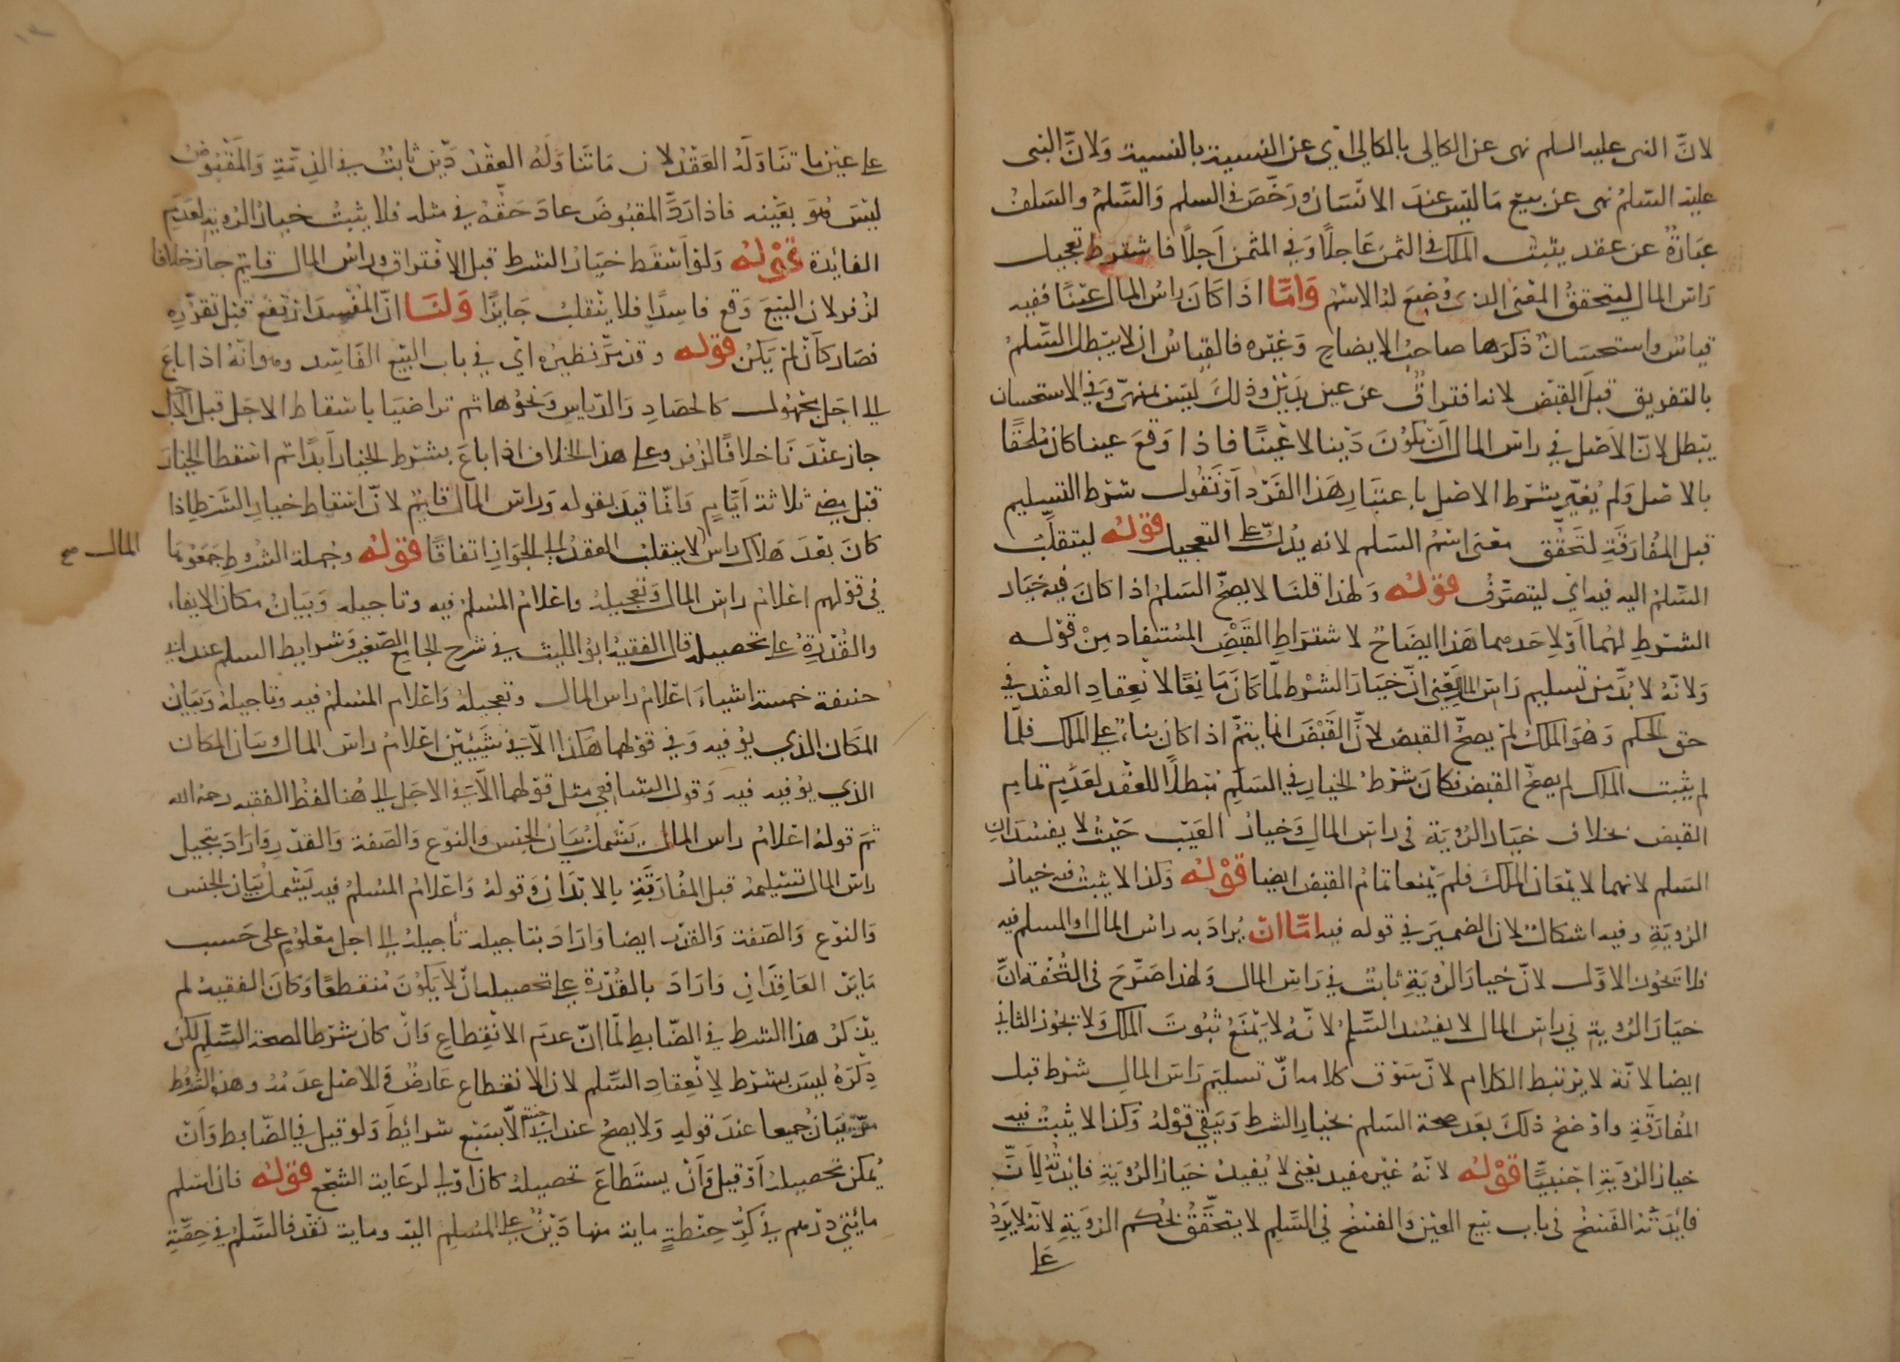 لان النبى عليه السلم نهى عن الكالى بالكالى اى عن النسية بالنسية ولان النبى
عليه السلم نهى عن بيع ما ليس عند الانسان ورخص فى السلم والسلم والسلف
عبارة عن عقد يثبت الملك فى الثمن عاجلا وفى المثمن آجلا فاشترط تعجيل
راس المال ليتحقق المعنى الذى وضع له الاسم واما اذا كان راس المال عينا ففيه
قياس واستحسان ذكرها صاحب الايضاح وغيره فالقياس ان لا يبطل السلم
بالتفريق قبل القبض لانه افتراق عن عين بدين وذلك ليس بمنهى وفى الاستحسان
يبطل لان الاصل فى راس المال ان يكون دينا لا عينا فاذا وقع عينا كان ملحقا
بالاصل ولم يغير بشرط الاصل باعتبار هذا الفرد او نقول شرط التسليم
قبل المفارقة لتحقق معنى اسم السلم لانه يدل على التعجيل قوله ليتقلب
السلم اليه فيه اى ليتصرف قوله ولهذا قلنا لا يصح السلم اذا كان فيه خيار
الشرط لهما او لاحدهما هذا ايضاح لاشتراط القبض المستفاد من قوله
ولانه لا بد من تسليم راس المال يعنى ان خيار الشرط لما كان مانعا لانعقاد العقد فى
حق الحكم وهو الملك لم يصح القبض لان القبض انما يتم اذا كان بناء على الملك فلما
لم يثبت الملك لم يصح القبض فكان شرط الخيار فى السلم مبطلا للعقد لعدم تمام
القبض بخلاف خيار الرؤية فى راس المال وخيار العيب حيث لا يفسدان
السلم لانهما لا يمنعان الملك فلم يمنعا تمام القبض ايضا قوله وكذا لا يثبت فيه خيار
الرؤية وفيه اشكال لان الضمير فى قوله فيه اما ان يراد به راس المال او المسلم فيه
فلا يجوز الاول لان خيار الرؤية ثابت فى راس المال ولهذا صرح فى التحفة ان
خيار الرؤية فى راس المال لا يفسد السلم لانه لا يمنع ثبوت الملك ولا يجوز الثانى
ايضا لانه لا يرتبط الكلام لان سوق كلامه ان تسليم راس المال شرط قبل
المفارقة واوضح ذلك بعد صحة السلم بخيار الشرط ويبقى قوله وكذا لا يثبت فيه
خيار الرؤية اجنبيا قوله لانه غير مفيد يعنى لا يفيد خيار الرؤية فائدته لان
فائدته الفسخ فى باب بيع العين والفسخ فى السلم لا يتحقق بحكم الرؤية لانه لا يرد
على
على عين ما تناوله العقد لان ما تناوله العقد دين ثابت فى الذمة والمقبوض
ليس هو بعينه فاذا رد المقبوض عاد حقه فى مثله فلا يثبت خيار الرؤية لعدم
الفائدة قوله ولو اسقط خيار الشرط قبل الافتراق وراس المال قايم جاز خلافا
لزفر لان البيع وقع فاسدا فلا ينقلب جايزا ولنا ان المفسد ارتفع قبل تقرره
فصار كان لم يكن قوله وقد مر نظيره اى فى باب البيع الفاسد وهو انه اذا باع
الى اجل مجهول كالحصاد والدياس ونحوها ثم تراضيا باسقاط الاجل قبل الاجل
جاز عندنا خلافا لزفر وعلى هذا الخلاف اذا باع بشرط الخيار ابدا ثم اسقط الخيار
قبل مضى ثلاثة ايام وانما قيد بقوله وراس المال قايم لان اسقاط خيار الشرط اذا
كان بعد هلاك راس لا ينقلب العقد الى الجواز اتفاقا قوله وجملة الشروط جمعوها
المال صح
فى قولهم اعلام راس المال وتعجيله واعلام المسلم فيه وتاجيله وبيان مكان الايفاء
والقدرة على تحصيله قال الفقيه ابو الليث فى شرح الجامع الصغير وشرايط السلم عند ابى
حنيفة خمسة اشياء اعلام راس المال وتعجيله واعلام المسلم فيه وتاجيله وبيان
المكان الذى يوفيه وفى قولهما هكذا الا فى شيئين اعلام راس المال وبيان المكان
الذى يوفيه فيه وقول الشافعى مثل قولهما الا فى الاجل الى هنا لفظ الفقيه رحمه الله
ثم قوله اعلام راس المال يشمل بيان الجنس والنوع والصفة والقدر واراد بتعجيل
راس المال تسليمه قبل المفارقة بالابدان وقوله واعلام المسلم فيه يشمل بيان الجنس
والنوع والصفة والقدر ايضا واراد بتاجيله تاجيله الى اجل معلوم على حسب
ما بين العاقدان واراد بالقدرة على تحصيله ان لا يكون منقطعا وكان الفقيه لم
يذكر هذا الشرط فى الضابط لما ان عدم الانقطاع وان كان شرطا لصحة السلم لكن
ذكره ليس بشرط لانعقاد السلم لان الانقطاع عارض والاصل عدمه وهذه الشروط
مر بيان جميعا عند قوله ولا يصح عند ابى حنيفة الا بسبع شرائط ولو قيل فى الضابط وان
يمكن تحصيله او قيل وان يستطاع تحصيله كان اولى لرعاية السجع قوله فان اسلم
مائتى درهم فى كر حنطة ماية منها دين على المسلم اليه وماية نقد فالسلم فى حصة